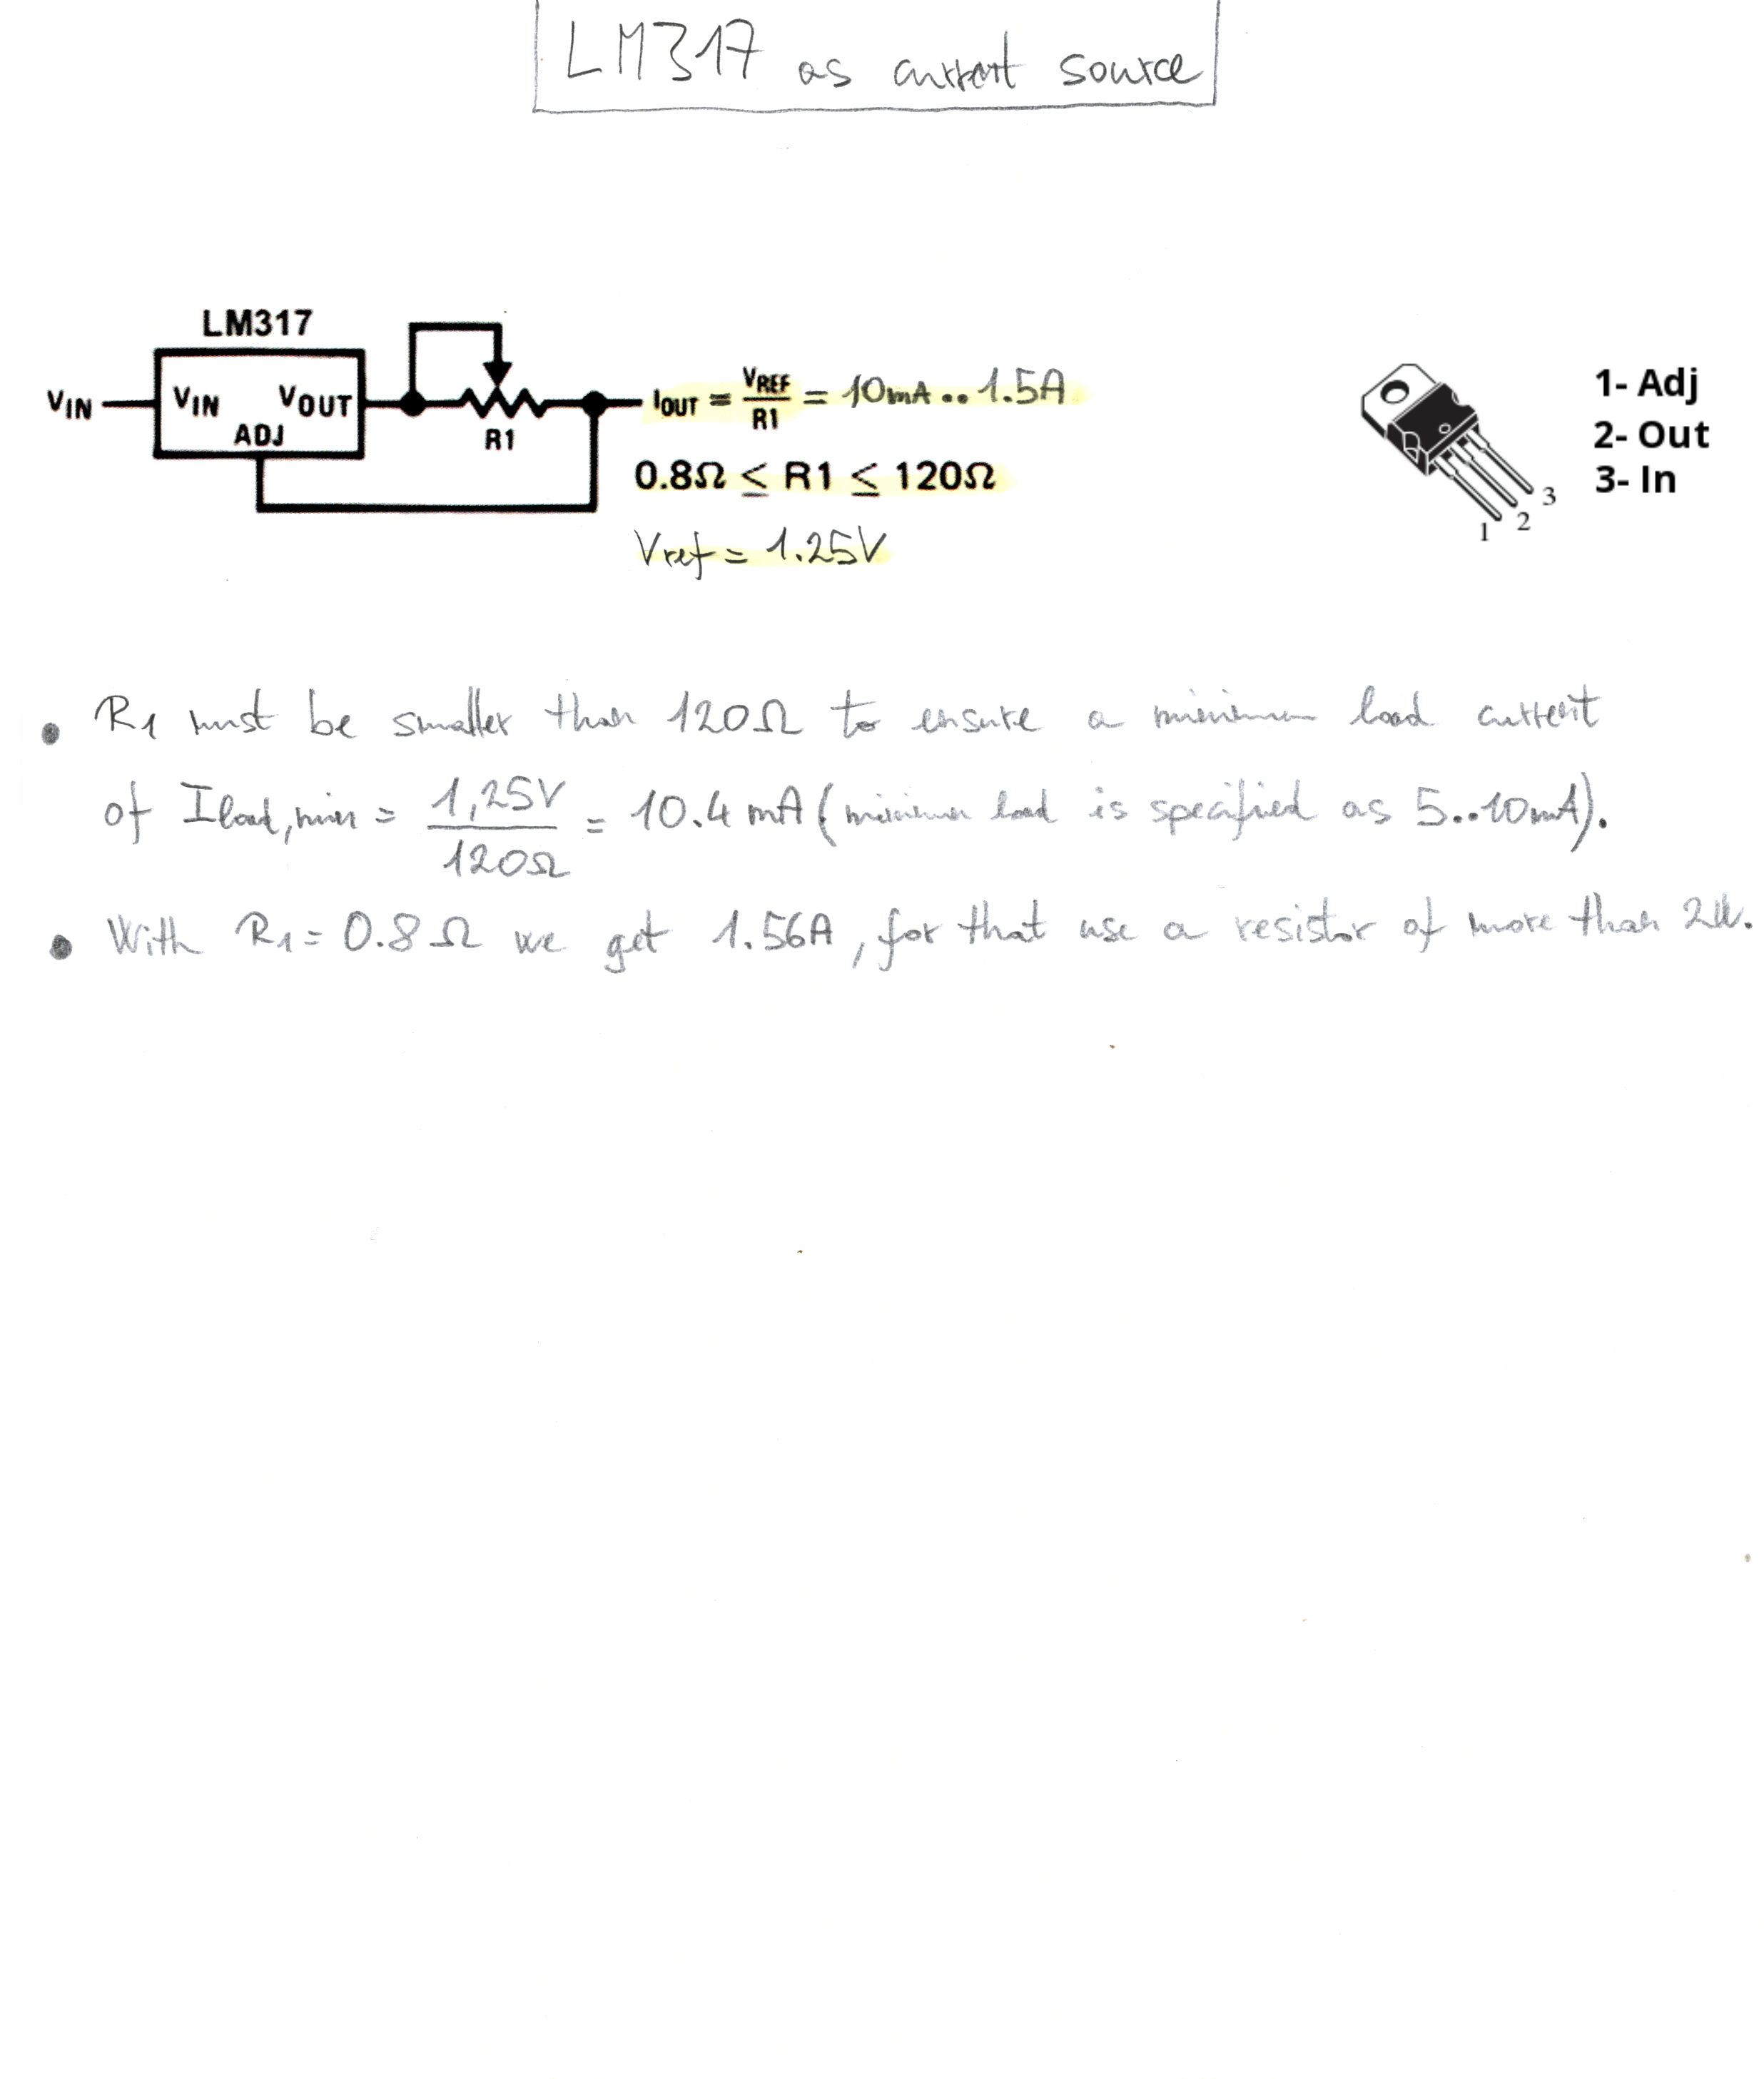 LM317 as current source
LM317
VIN
VIN
VOUT
ADJ
R1
IOUT = VREF / R1 = 10mA .. 1.5A
0.8Ω ≤ R1 ≤ 120Ω
Vref = 1.25V
1- Adj
2- Out
3- In
1
2
3
• R1 must be smaller than 120Ω to ensure a minimum load current
of Iload,min = 1,25V / 120Ω = 10.4 mA (minimum load is specified as 5..10mA).
• With R1 = 0.8Ω we get 1.56A, for that use a resistor of more than 2W.